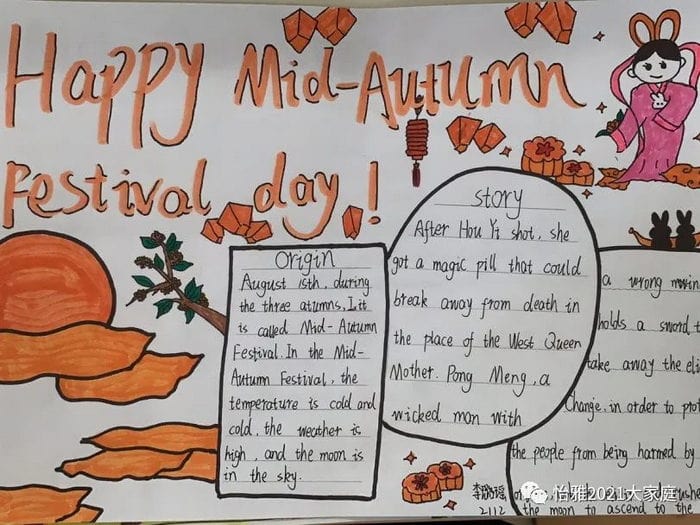 Happy Mid-Autumn
Festival day!
Origin
August 15th, during
the three atumns, I.it
is called Mid-Autumn
Festival. In the Mid-
Autumn Festival, the
temperature is cold and
cold, the weather is
high, and the moon is
in the sky.
story
After Hou Yi shot, she
got a magic pill that could
break away from death in
the place of the West Queen
Mother. Pong Meng, a
wicked man with
a wrong
holds a sword, t
take away the eli
Change, in order to pro
the people from being harmed by
the moon to ascend to the
李
2112
怡雅2021大家庭